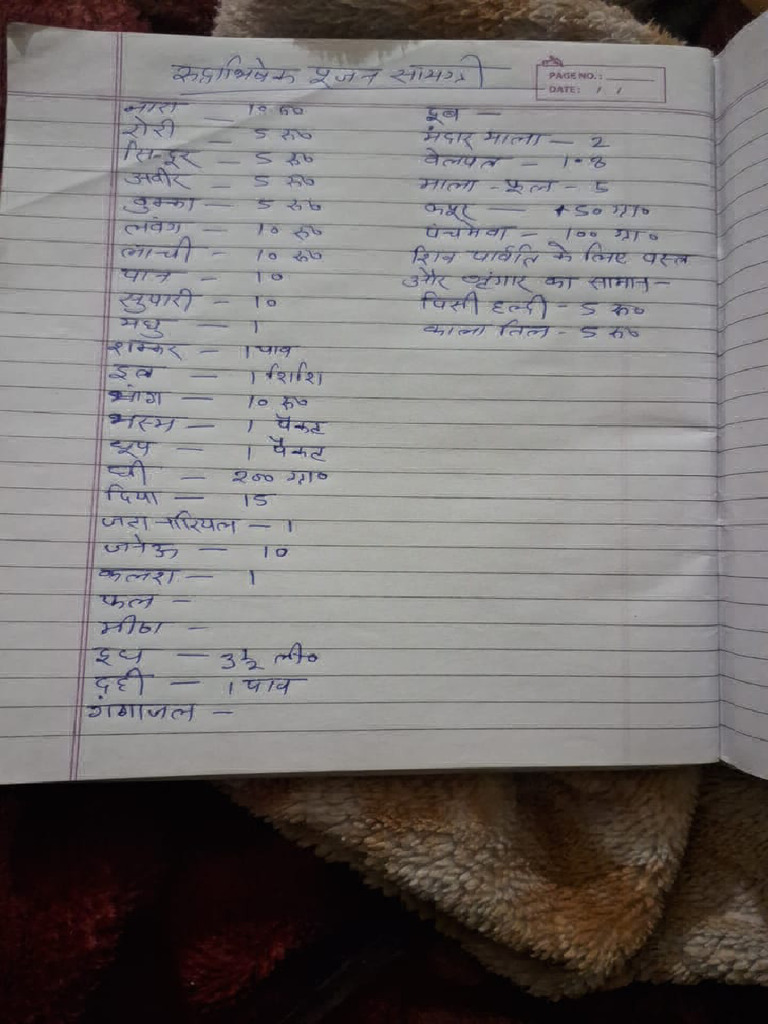 रुद्राभिषेक पूजन सामग्री
PAGE NO.:
DATE: / /
नारा — 10 रु०
रोरी — 5 रु०
सिन्दुर — 5 रु०
अबीर — 5 रु०
बुक्का — 5 रु०
लवंग — 10 रु०
लाची — 10 रु०
पान — 10
सुपारी — 10
मधु — 1
शक्कर — 1 पाव
इत्र — 1 शिशि
भांग — 10 रु०
भस्म — 1 पैकट
धूप — 1 पैकट
घी — 200 ग्रा०
दिया — 15
जटा नारियल — 1
जनेऊ — 10
कलश — 1
फल —
मीठा —
दूध — 3½ ली०
दही — 1 पाव
गंगाजल —
दूब —
मंदार माला — 2
बेलपत्र — 108
माला - फूल - 5
कपूर — 50 ग्रा०
पंचमेवा — 100 ग्रा०
शिव पार्वति के लिए वस्त्र
और श्रृंगार का सामान —
पिसी हल्दी - 5 रु०
काला तिल - 5 रु०